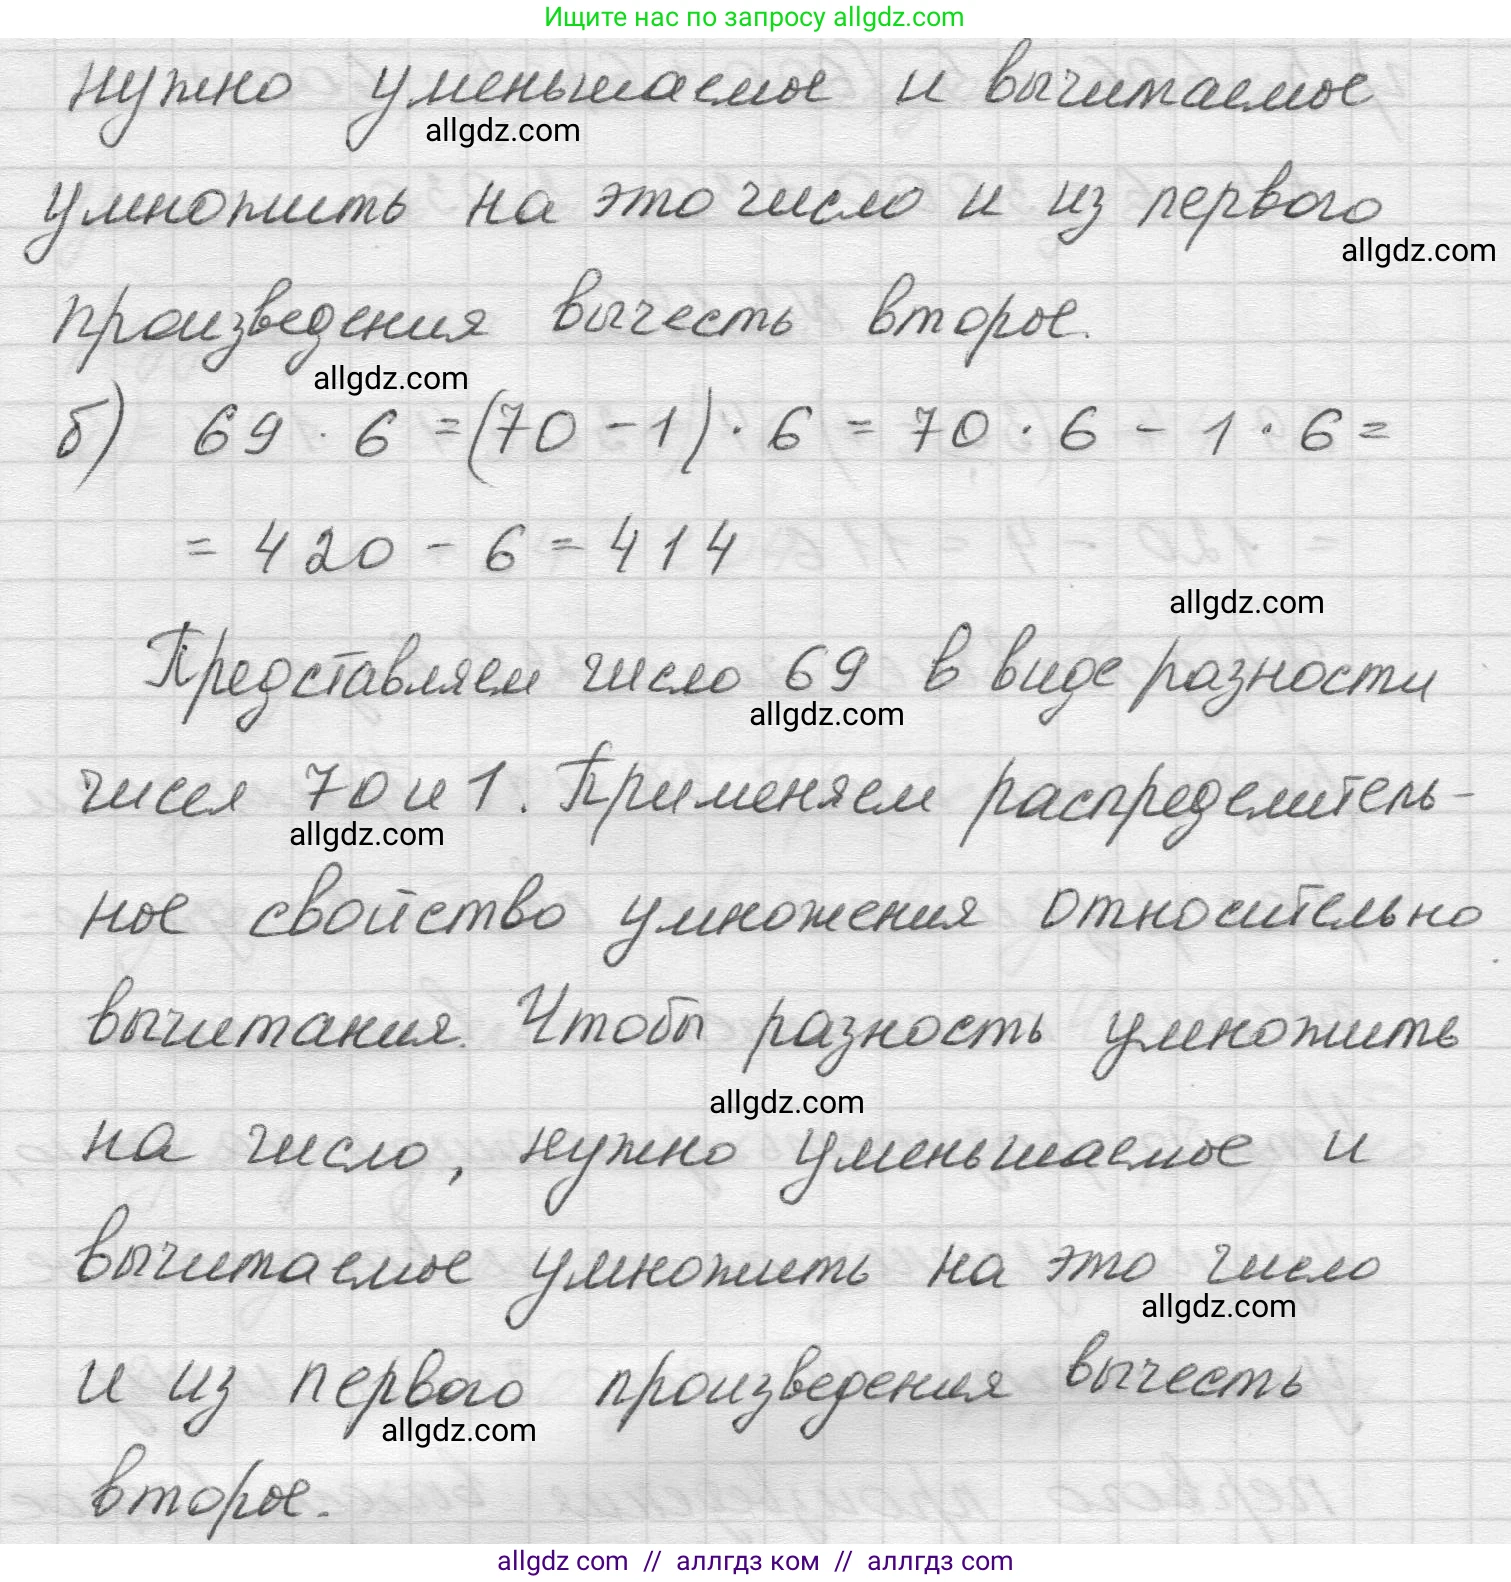 Ищите нас по запросу allgdz.com
нужно уменьшаемое и вычитаемое
allgdz.com
умножить на это число и из первого
allgdz.com
произведения вычесть второе.
allgdz.com
б) 69 · 6 = (70 - 1) · 6 = 70 · 6 - 1 · 6 =
= 420 - 6 = 414
allgdz.com
Представляем число 69 в виде разности
allgdz.com
чисел 70 и 1. Применяем распределитель-
allgdz.com
ное свойство умножения относительно
вычитания. Чтобы разность умножить
allgdz.com
на число, нужно уменьшаемое и
вычитаемое умножить на это число
allgdz.com
и из первого произведения вычесть
allgdz.com
второе.
allgdz com // аллгдз ком // аллгдз com